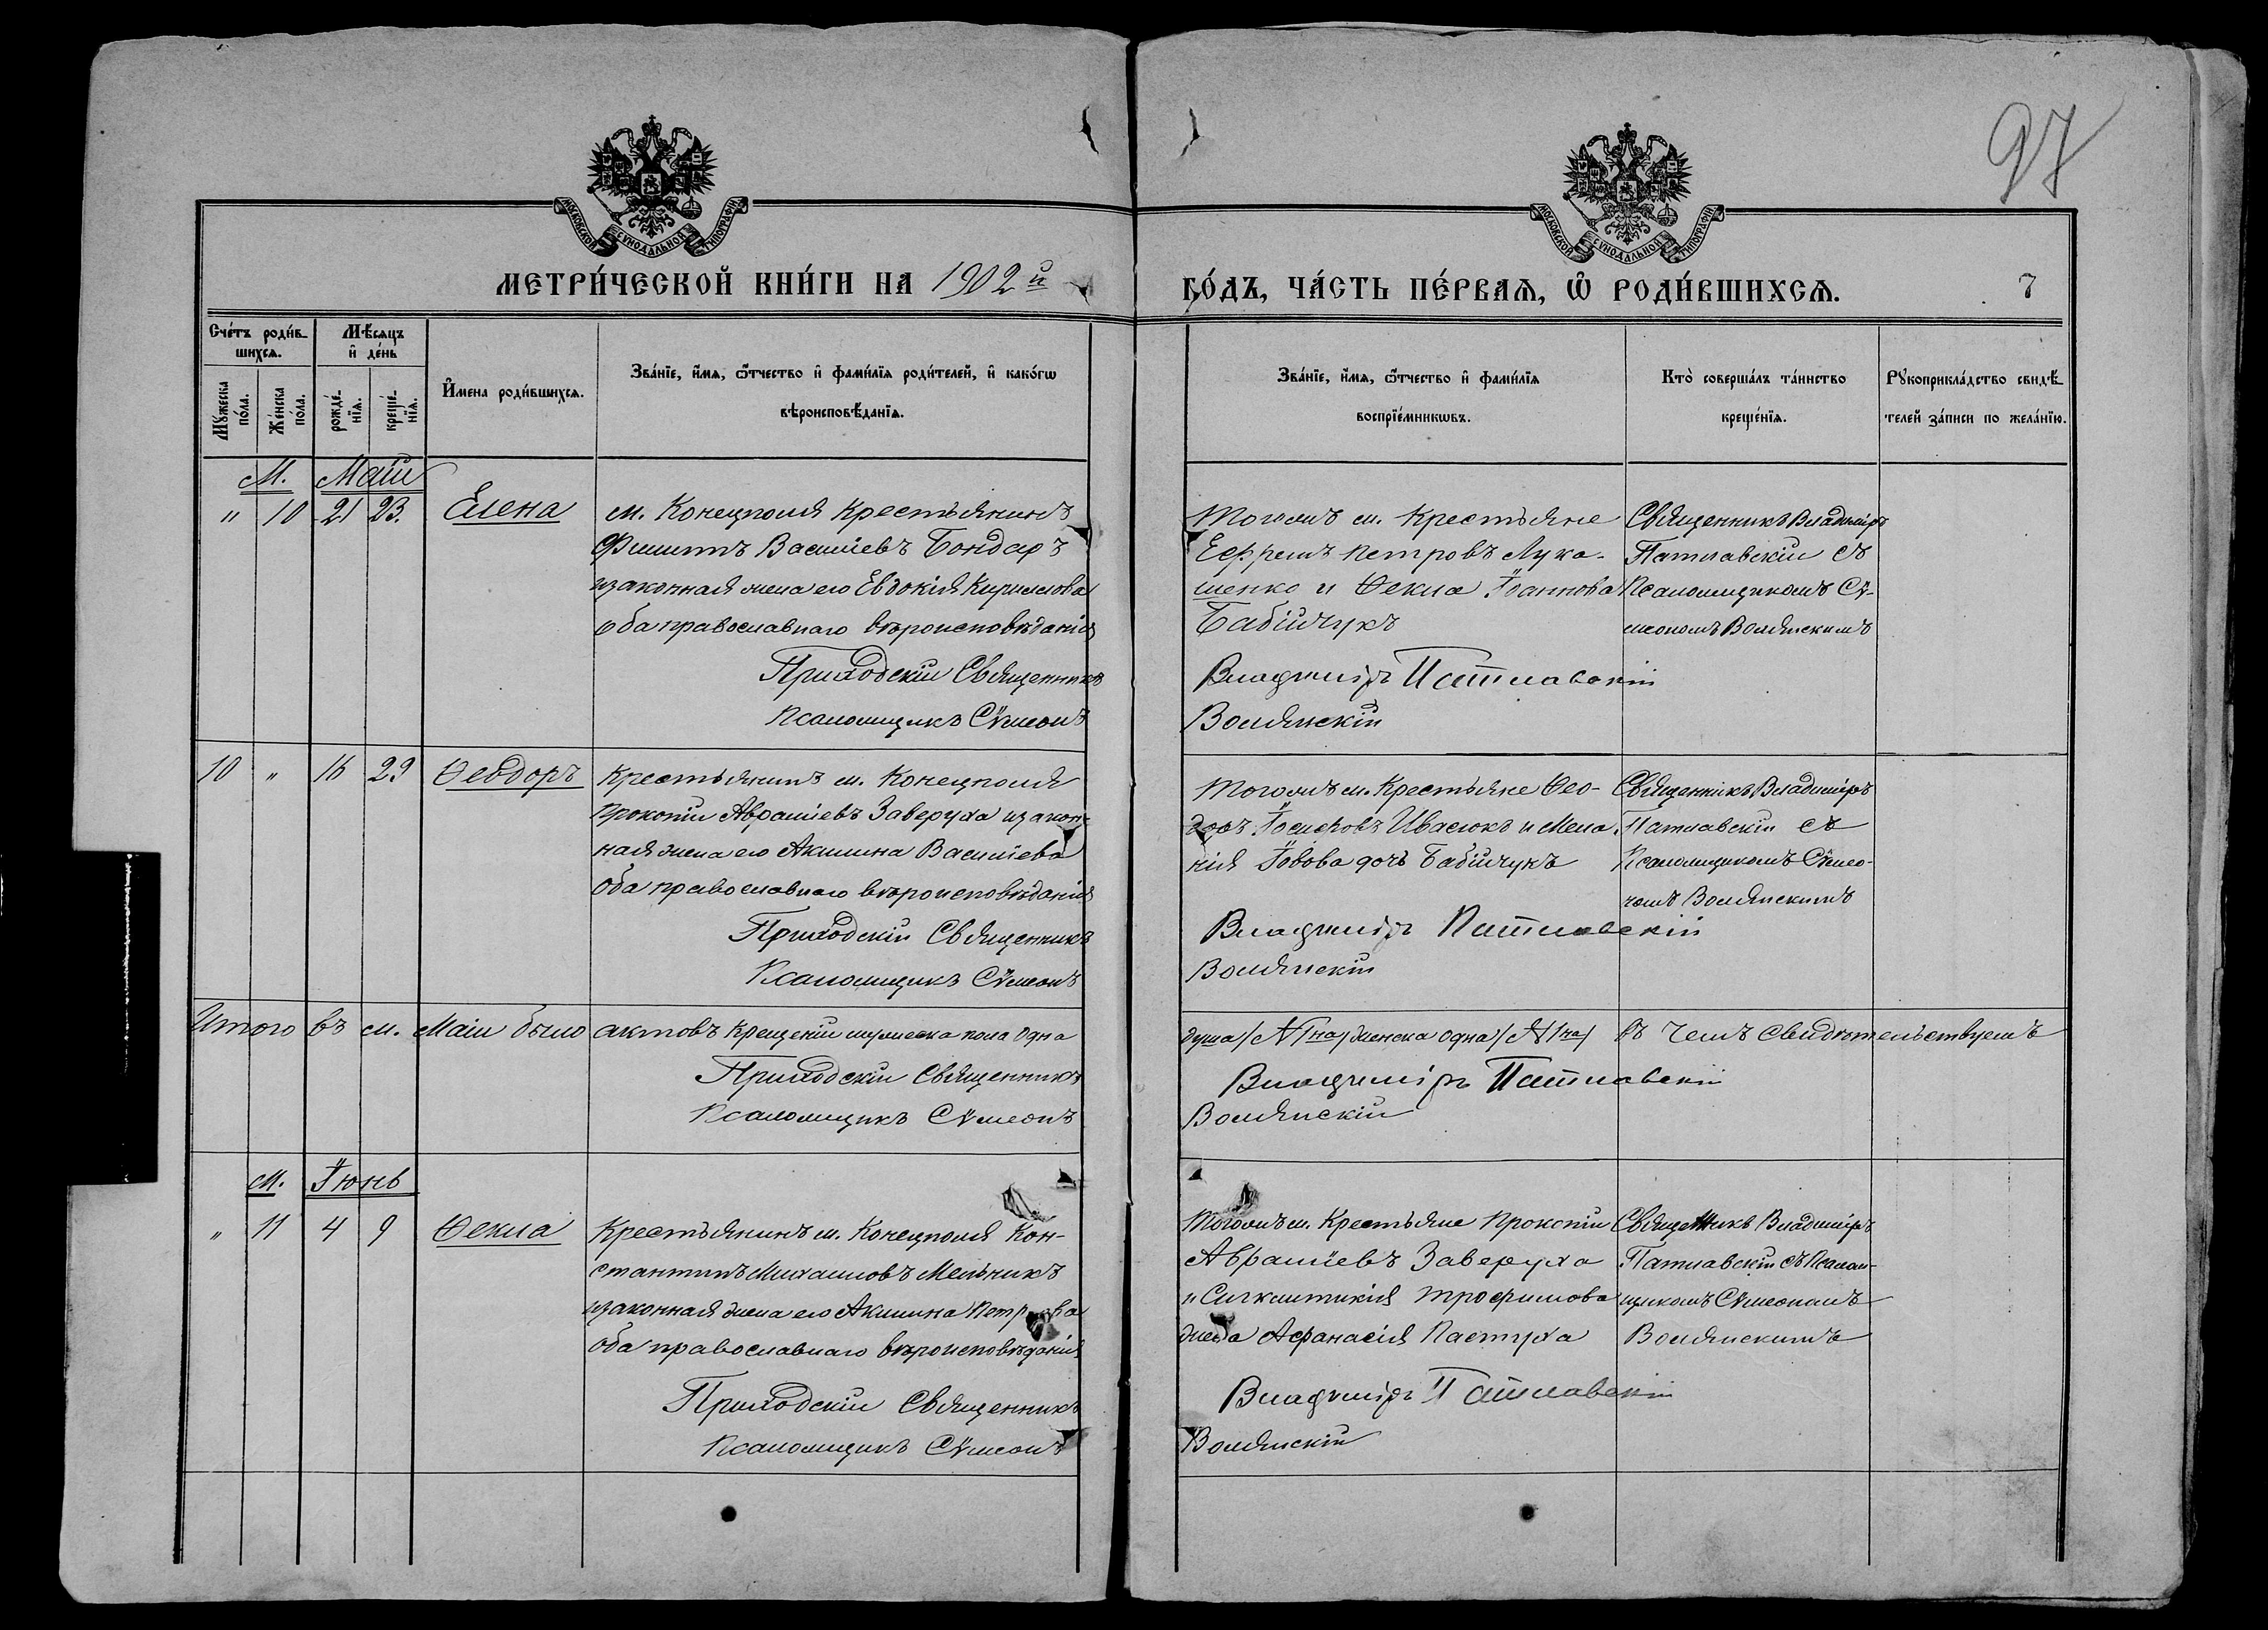 97
МОСКОВСКОЙ СѴНОДАЛЬНОЙ ТИПОГРАФІИ
МОСКОВСКОЙ СѴНОДАЛЬНОЙ ТИПОГРАФІИ
МЕТРИ́ЧЕСКОЙ КНИ́ГИ НА 1902 й
ГО́ДЪ, ЧА́СТЬ ПЕ́РВАѦ, Ѽ РОДИ́ВШИХСѦ.
7
Сче́тъ роди́в-
шихсѧ.
Мѣ́сѧцъ
и҆ де́нь
Мꙋ́жеска
по́ла.
Же́нска
по́ла.
рожде́-
нїѧ.
креще́-
нїѧ.
И҆мена роди́вшихсѧ.
Зва́нїе, и҆́мѧ, ѻ҆́тчество и҆ фами́лїѧ роди́телей, и҆ како́гѡ
вѣроисповѣ́данїѧ.
Зва́нїе, и҆́мѧ, ѻ҆́тчество и҆ фами́лїѧ
воспрїе́мникѡвъ.
Кто̀ соверша́лъ та́инство
креще́нїѧ.
Рꙋкоприкла́дство свидѣ́-
телей за́писи по жела́нїю.
М. Маій
" 10 21 23. Елена
м. Конецполя Крестьянинъ
Филиппъ Василіевъ Бондаръ
изаконная жена его Евдокія Кириллова
оба православнаго вѣроисповѣданія
Приходскій Священникъ
Псаломщикъ Сѵмеонъ
Тогожъ м. Крестьяне
Ефремъ Петровъ Лука-
шенко и Ѳекла Іоаннова
Бабійчукъ
Владиміръ Патлавскій
Волянскій
Священникъ Владиміръ
Патлавскій съ
Псаломщикомъ Сѵ-
меономъ Волянскимъ
10 " 16 29 Ѳеодоръ
Крестьянинъ м. Конецполя
Прокопій Авраміевъ Заверуха изакон-
ная жена его Акилина Василіева
Оба православнаго вѣроисповѣданія
Приходскій Священникъ
Псаломщикъ Сѵмеонъ
Тогожъ м. Крестьяне Ѳео-
доръ Ивасюкъ и Мела-
нія Іовова дочь Бабійчукъ
Владиміръ Патлавскій
Волянскій
Священникъ Владиміръ
Патлавскій съ
Псаломщикомъ Сѵмео-
номъ Волянскимъ
Итого въ м. Маіи было актовъ крещеній мужеска пола одна
Приходскій Священникъ
Псаломщикъ Сѵмеонъ
душа /№ 1на/ женска одна /№ 1на/ въ чемъ свидѣтельствуемъ
Владиміръ Патлавскій
Волянскій
М. Іюнь
" 11 4 9 Ѳекла
Крестьянинъ м. Конецполя Кон-
стантинъ Михаиловъ Мельникъ
изаконная жена его Акилина Петрова
оба православнаго вѣроисповѣданія
Приходскій Священникъ
Псаломщикъ Сѵмеонъ
Тогожъ м. Крестьяне Прокопій
Авраміевъ Заверуха
и Трофимова
жена Афанасія Пастуха
Владиміръ Патлавскій
Волянскій
Священникъ Владиміръ
Патлавскій съ Псалом-
щикомъ Сѵмеономъ
Волянскимъ